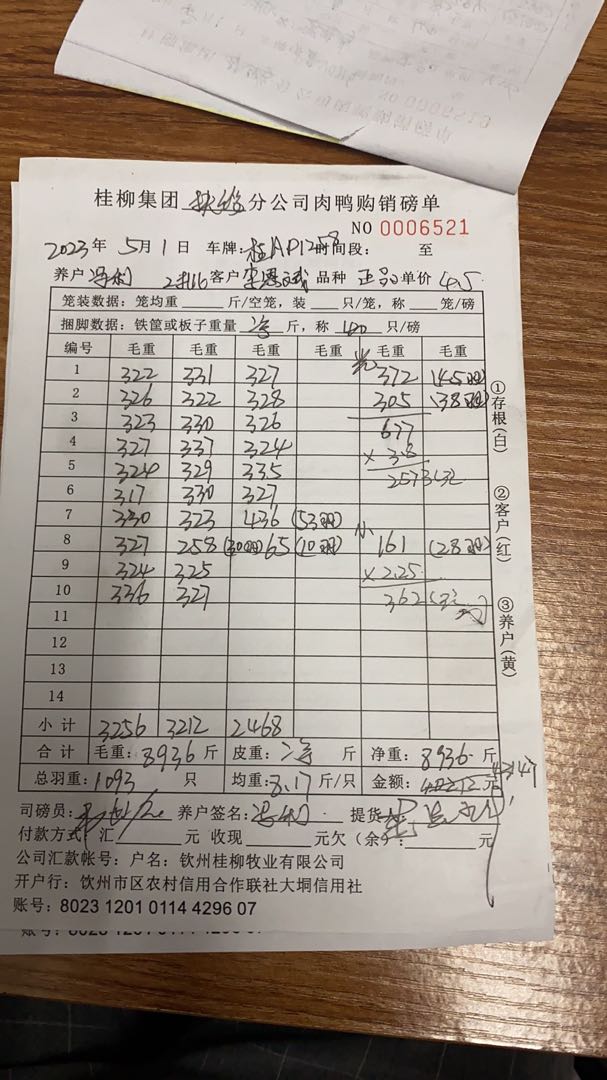 桂柳集团 分公司肉鸭购销磅单
NO 0006521
2023年 5月1日 车牌: 时间段: 至
养户 2#16 客户 品种 正品 单价 4.5
笼装数据: 笼均重 斤/空笼, 装 只/笼, 称 笼/磅
捆脚数据: 铁筐或板子重量 斤, 称 只/磅
编号 毛重 毛重 毛重 毛重 毛重 毛重
1 322 331 327 372 (45羽)
2 326 322 328 305 (38羽)
3 323 330 326 677
4 327 337 324 × 3.8
5 324 329 335 2573
6 317 330 327
7 330 323 436 (53羽)
8 327 258 (30羽) 65 (10羽) 小 161 (28羽)
9 324 325 × 2.25
10 336 327 362
11
12
13
14
小计 3256 3212 2468
合计 毛重: 8936 斤 皮重: 斤 净重: 8936 斤
总羽重: 1093 只 均重: 8.17 斤/只 金额: 元
司磅员: 养户签名: 提货
付款方式: 汇 元 收现 元欠(余): 元
公司汇款帐号: 户名: 钦州桂柳牧业有限公司
开户行: 钦州市区农村信用合作联社大垌信用社
账号: 8023 1201 0114 4296 07
①存根(白)
②客户(红)
③养户(黄)